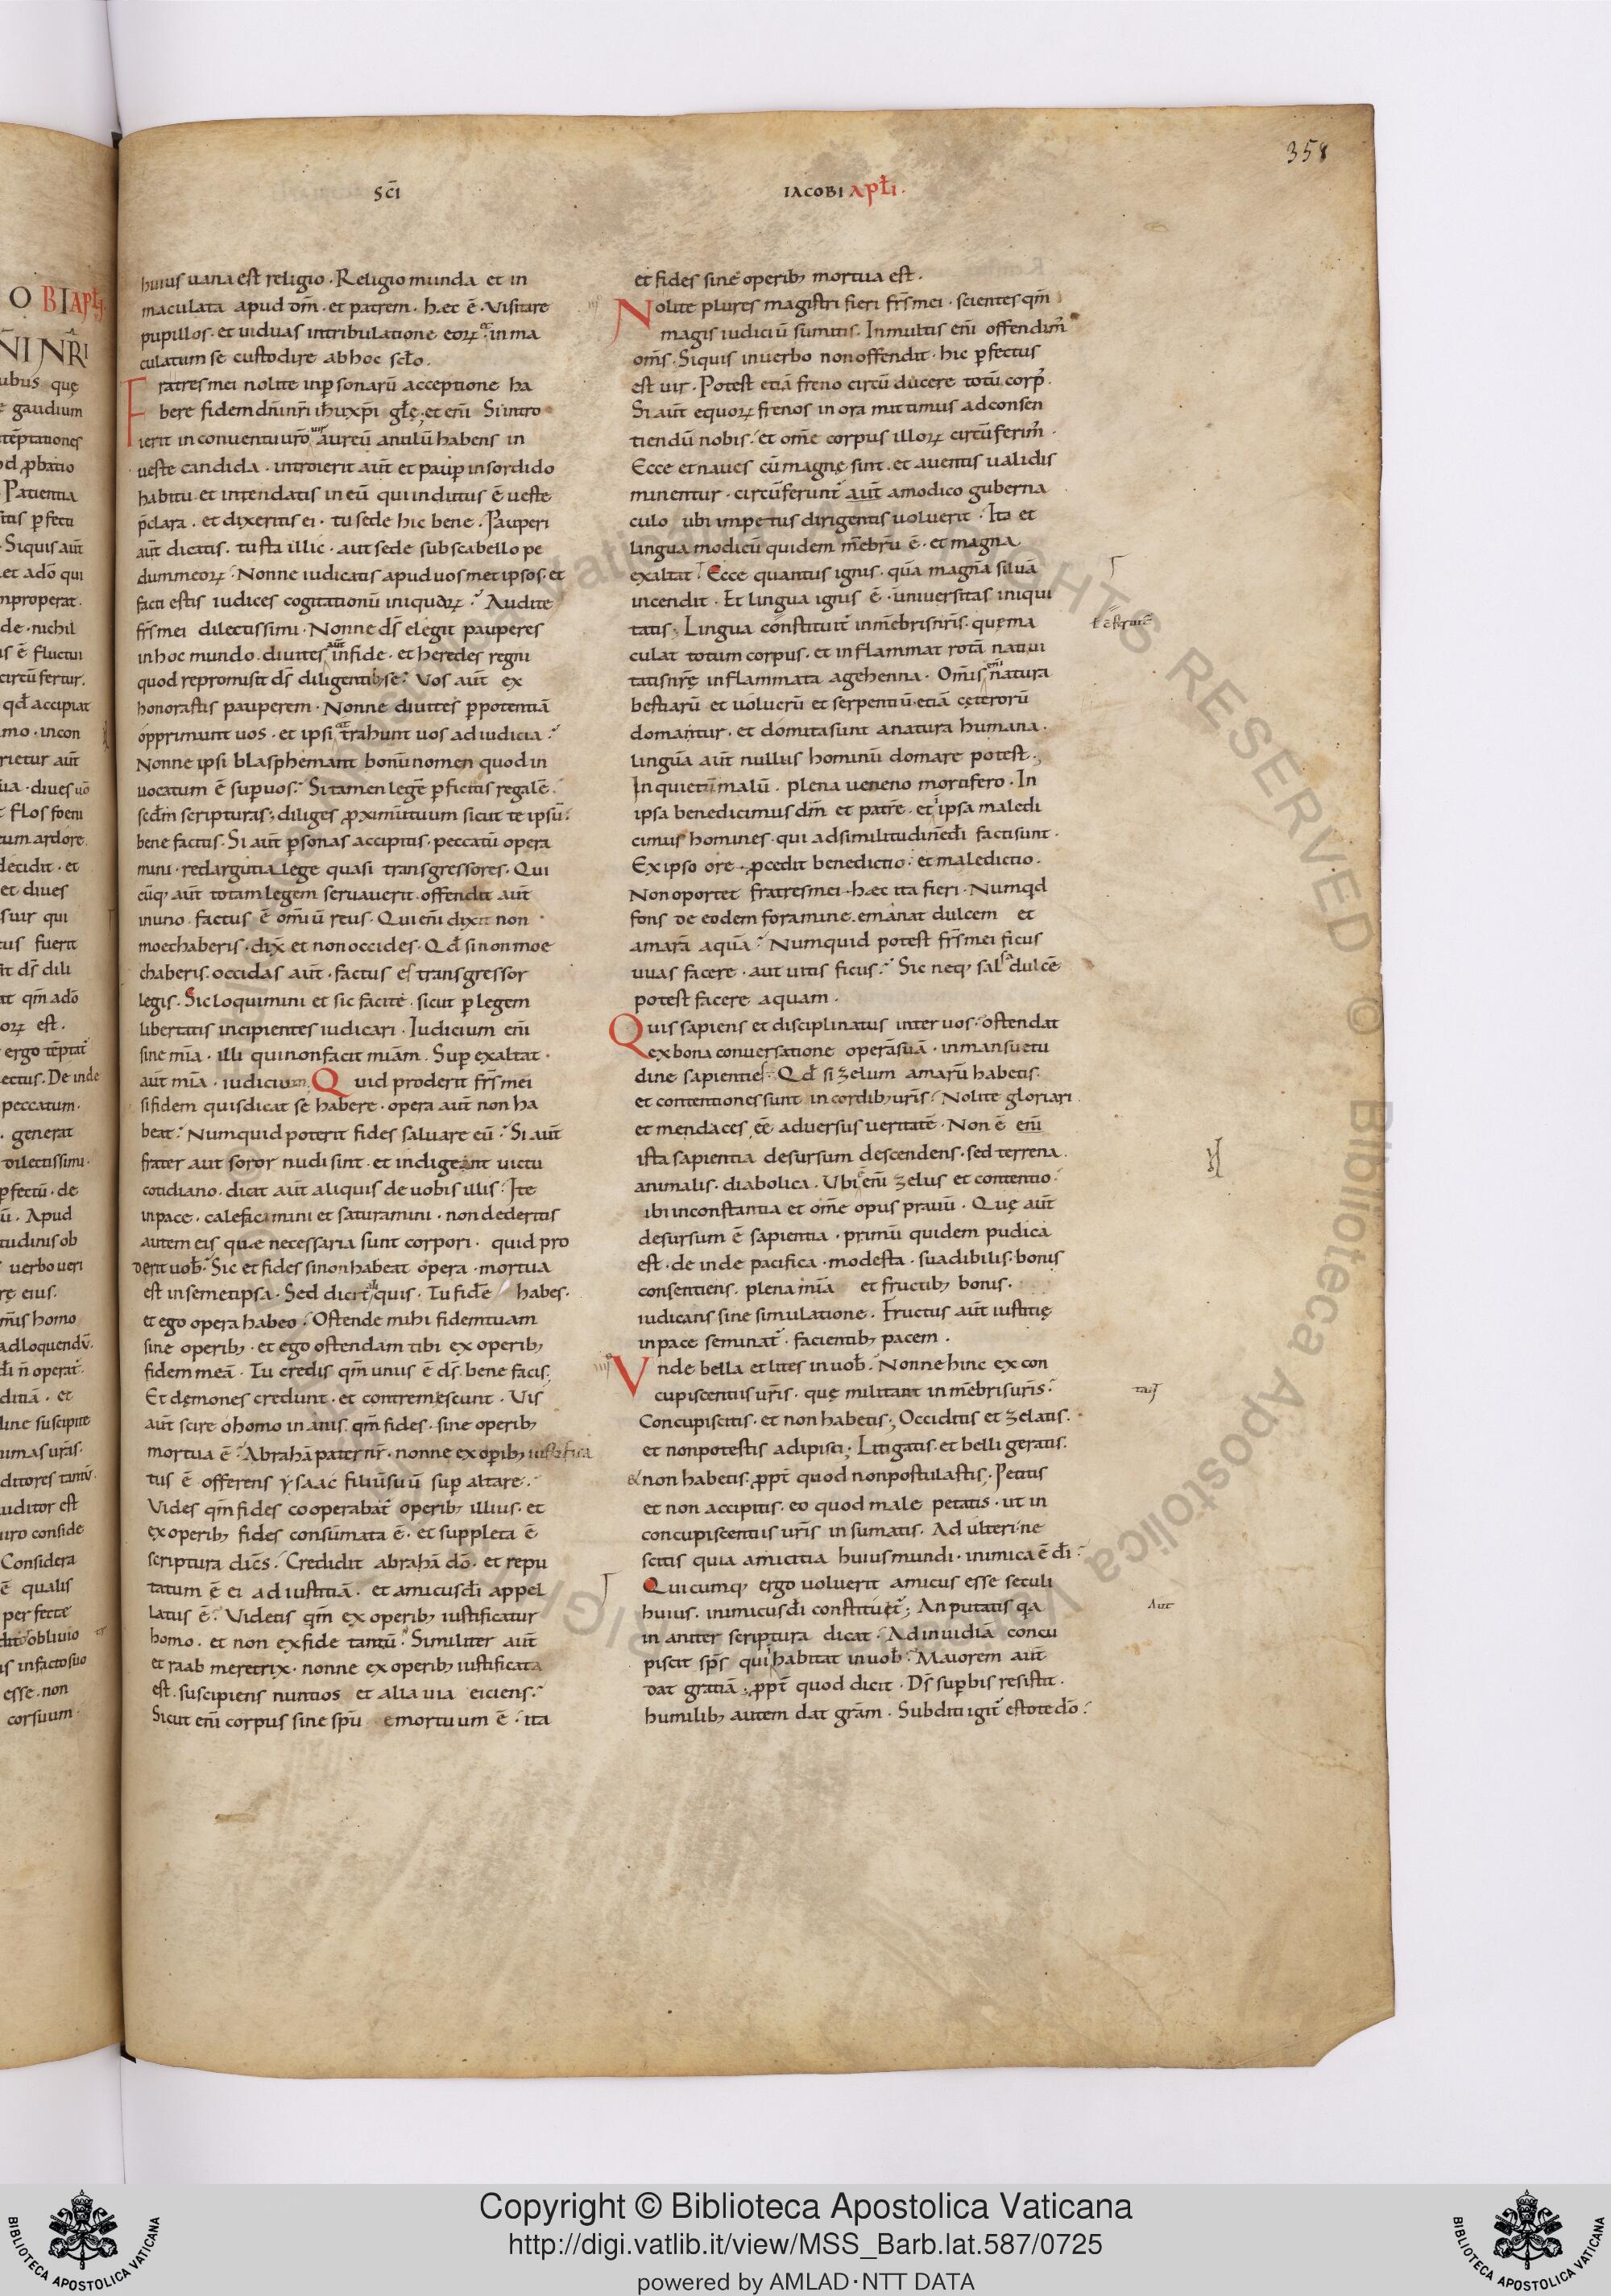 358
SC̄I
IACOBI APŁI·
O BI APŁI
N̄I NR̄I
ubus quę
e gaudium
tēptationes
od ꝓbatio
Patientia
itis pfectū
Siquis aūt
et adō qui
nproperat·
de·nichil
is ē fluctui
circū fertur·
qd̄ accipiat
mo·incon
rietur aūt
ua·diues uō
flos foeni
cum ardore
decidit·et
et diues
suir qui
cus fuerit
it dS̄ dili
at qm̄ adō
oꝝ est.
ergo tēptat᷑
ectus. De inde
peccatum·
. generat
dilectissimi·
pfectū·de
ū. Apud
tudinis ob
uerbo ueri
rę eius.
m̄is homo
adloquendū·
dī n̄ operat᷑
ditiā. et
dine suscipite
nimas urās·
ditores tantū·
uditor est
uiro conside
Considera
ē qualis
perfecte
ditor obliuio
is infacto suo
esse·non
corsuum·
huius uana est religio·Religio munda et in
maculata apud dm̄·et patrem·hæc ē·Visitare
pupillos·et uiduas intribulatione eoꝝ·inma
culatum se custodire abhoc scło.
Fratres mei nolite inpsonarū acceptione ha
bere fidem dn̄i nr̄i ih̄u xp̄i głę·et eni Si intro
ierit in conuentu uro uir aureū anulū habens in
ueste candida·introierit aūt et paup insordido
habitu·et intendatis in eū qui indutus ē ueste
p̄clara·et dixeritis ei·tu sede hic bene·Pauperi
aūt dicatis·tu sta illic·aut sede subscabello pe
dum meoꝝ·Nonne iudicatis apud uos met ipsos·et
facti estis iudices cogitationū iniquaꝝ·Audite
fr̄s mei dilectissimi·Nonne dS̄ elegit pauperes
inhoc mundo·diuites aūt infide·et heredes regni
quod repromisit dS̄ diligentibꝫ se·Vos aūt ex
honorastis pauperem·Nonne diuites p potentiā
opprimunt uos·et ipsi trahunt uos ad iudicia·
Nonne ipsi blasphemant bonū nomen quod in
uocatum ē sup uos·Si tamen legē pficitis regalē·
scd̄m scripturas;diliges ꝓximū tuum sicut te ipsū·
bene facitis·Si aūt psonas accipitis·peccatū opera
mini·redarguti a lege quasi transgressores·Qui
cūqꝫ aūt totam legem seruauerit·offendit aūt
inuno·factus ē om̄iū reus·Qui eni dixit non
moechaberis·dix̄ et non occides·Qd̄ si non moe
chaberis·occidas aūt·factus es transgressor
legis·Sic loquimini et sic facite·sicut p legem
libertatis incipientes iudicari·Iudicium eni
sine mīa·illi qui non facit miām·Sup exaltat·
aūt mīa·iudicium·Quid proderit fr̄s mei
si fidem quis dicat se habere·opera aūt non ha
beat·Numquid poterit fides saluare eū·Si aūt
frater aut soror nudi sint·et indigeant uictu
cotidiano·dicat aūt aliquis de uobis illis·Ite
inpace·calefacimini et saturamini·non dederitis
autem eis quæ necessaria sunt corpori·quid pro
derit uob̄·Sic et fides si non habeat opera·mortua
est insemetipsa·Sed dicet quis·Tu fidē habes·
et ego opera habeo·Ostende mihi fidem tuam
sine operibꝫ·et ego ostendam tibi ex operibꝫ
fidem meā·Tu credis qm̄ unus ē dS̄·bene facis;
Et dęmones credunt·et contremescunt·Vis
aūt scire o homo inanis·qm̄ fides·sine operibꝫ
mortua ē·Abrahā pater nr̄·nonne ex opibꝫ iustifica
tus ē offerens ysaac filiū suū sup altare·
Vides qm̄ fides cooperabat᷑ operibꝫ illius·et
ex operibꝫ fides consūmata ē·et suppleta ē
scriptura dicēs·Credidit abrahā dō·et repu
tatum ē ei ad iustitiā·et amicus dī appel
latus ē·Videtis qm̄ ex operibꝫ iustificatur
homo·et non exfide tantū·Similiter aūt
et raab meretrix·nonne ex operibꝫ iustificata
est·suscipiens nuntios et alia uia eiciens·
Sicut eni corpus sine spū emortuum ē·ita
et fides sine operibꝫ mortua est.
Nolite plures magistri fieri fr̄s mei·scientes qm̄
magis iudiciū sumitis·Inmultis eni offendim᷑
om̄s·Siquis inuerbo non offendit·hic pfectus
est uir·Potest etiā freno circū ducere totū corp᷑·
Si aūt equoꝝ frenos in ora mittimus ad consen
tiendū nobis·et om̄e corpus illoꝝ circū ferim᷑·
Ecce et naues cū magnę sint·et auentis ualidis
minentur·circūferunt᷑ aūt amodico guberna
culo ubi impetus dirigentis uoluerit·Ita et
lingua modicū quidem mēbrū ē·et magna
exaltat·Ecce quantus ignis·quā magnā siluā
incendit·Et lingua ignis ē·uniuersitas iniqui
tatis;Lingua constituit᷑ inmēbris nr̄is·quę ma
culat totum corpus·et inflammat rotā natiui
tatis nr̄ę inflammata a gehenna·Om̄is eni natura
bestiarū et uolucrū et serpentiū·etiā cęterorū
domantur·et domita sunt anatura humana·
linguā aūt nullus hominū domare potest·;
Inquietū malū·plena ueneno mortifero·In
ipsa benedicimus dm̄ et patrē·et ipsa maledi
cimus homines·qui ad similitudinē dī facti sunt·
Ex ipso ore·ꝓcedit benedictio·et maledictio·
Non oportet fratres mei·hæc ita fieri·Numqd
fons de eodem foramine·emanat dulcem et
amarā aquā·Numquid potest fr̄s mei ficus
uuas facere·aut uitis ficus·Sic neqꝫ salsa dulcē
potest facere aquam·
Quis sapiens et disciplinatus inter uos·ostendat
ex bona conuersatione operā suā·inmansuetu
dine sapientię·Qd̄ si zelum amarū habetis·
et contentiones sunt in cordibꝫ ur̄is·Nolite gloriari·
et mendaces eē aduersus ueritatē·Non ē eni
ista sapientia desursum descendens·sed terrena·
animalis·diabolica·Vbi eni zelus et contentio·
ibi inconstantia et om̄e opus prauū·Quę aūt
desursum ē sapientia·primū quidem pudica
est·de inde pacifica·modesta·suadibilis·bonis
consentiens·plena mīa et fructibꝫ bonis·
iudicans sine simulatione·Fructus aūt iustitię
inpace seminat᷑·facientibꝫ pacem·
Vnde bella et lites in uob̄·Nonne hinc ex con
cupiscentiis ur̄is·quę militant inmēbris ur̄is·
Concupiscitis·et non habetis;Occiditis et zelatis·
et non potestis adipisci;Litigatis·et belligeratis·
& non habetis·ꝓpt̄ quod non postulastis·Petitis
et non accipitis·eo quod male petatis·ut in
concupiscentiis ur̄is insumatis·Adulteri·ne
scitis quia amicitia huius mundi·inimica ē dī·
Quicumqꝫ ergo uoluerit amicus esse seculi
huius·inimicus dī constituet᷑;An putatis qa
inaniter scriptura dicat·Ad inuidiā concu
piscit sp̄s qui habitat inuob̄·Maiorem aūt
dat gratiā·ꝓpt̄ quod dicit·DS̄ supbis resistit·
humilibꝫ autem dat grām·Subditi igit᷑ estote dō·
Aut
Copyright © Biblioteca Apostolica Vaticana
http://digi.vatlib.it/view/MSS_Barb.lat.587/0725
powered by AMLAD·NTT DATA
BIBLIOTECA APOSTOLICA VATICANA
BIBLIOTECA APOSTOLICA VATICANA